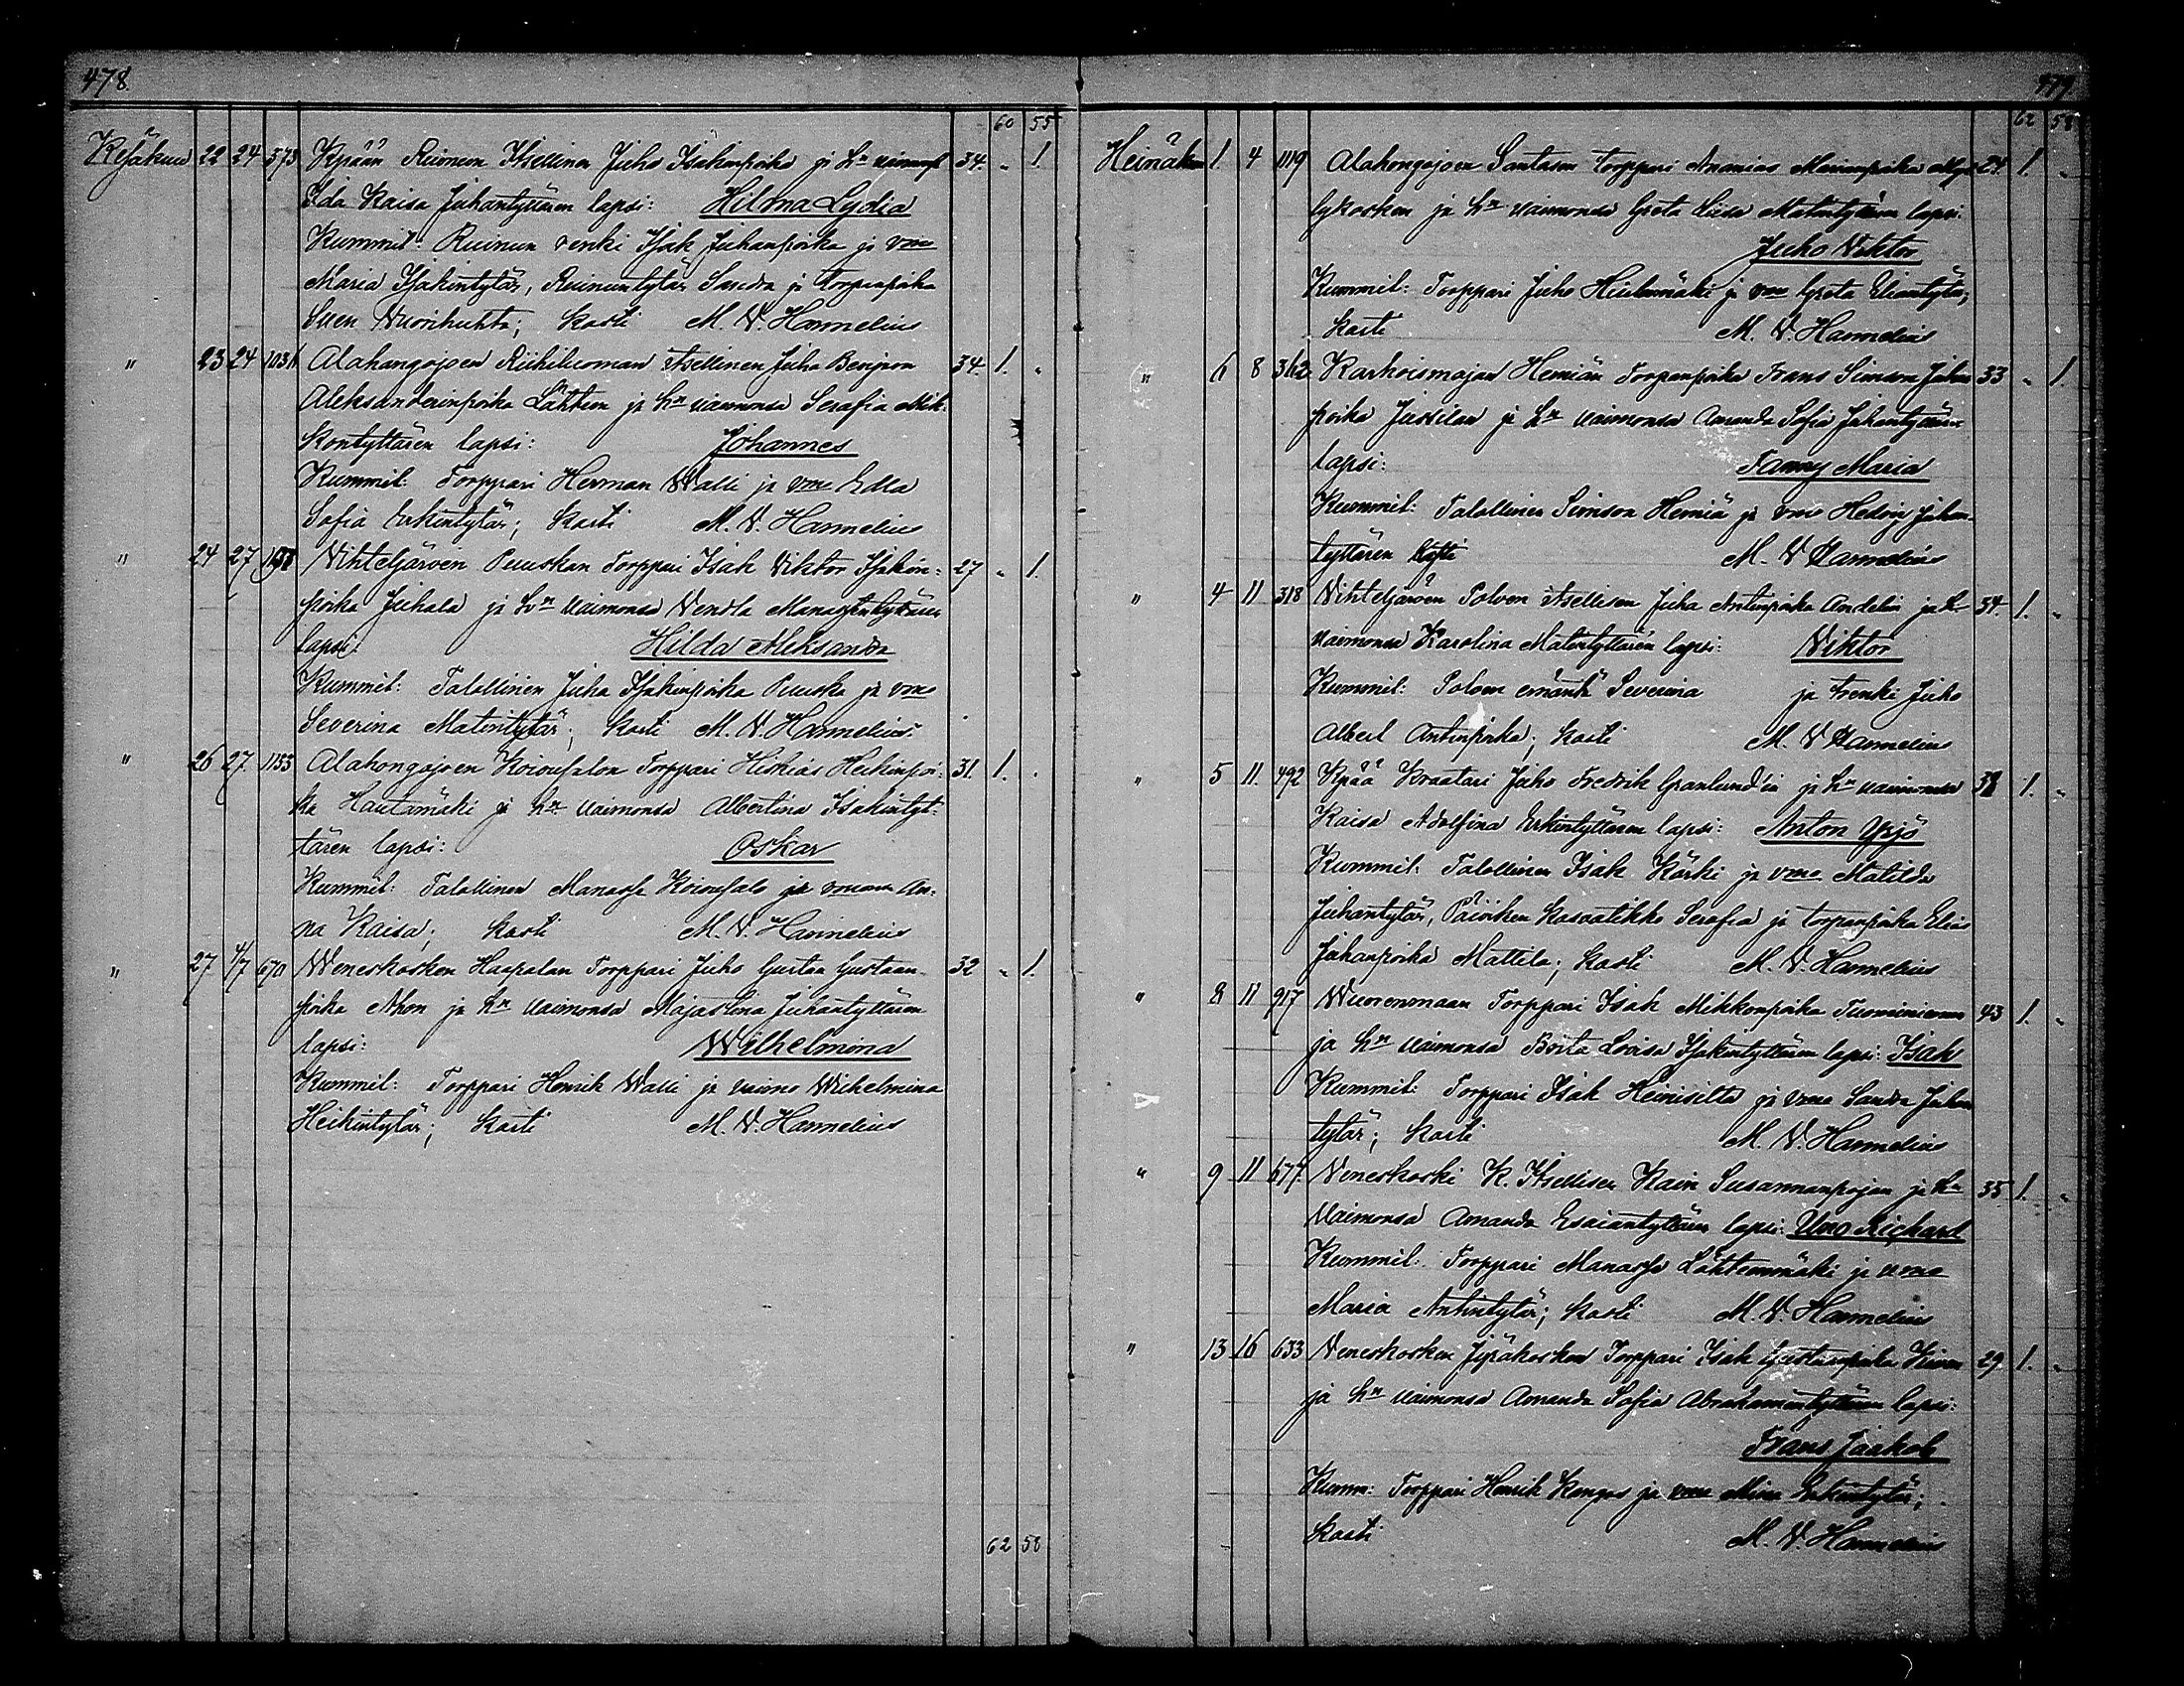 478.
60 55
Kesäkuu 22 24 573 Kpään Ruinun Itsellinen Juho Isakinpoika ja hn vaimons 34. „ 1.
Ida Kaisa Juhantyttären lapsi: Hilma Lydia
Kummit: Ruinun renki Isak Juhanpoika ja vmo
Maria Isakintytär, Ruinuntytär Sanda ja torpanpoika
Sven Vuorihuhta; kasti M. V. Hannelius
" 23 24 Alahongojoen Riihiluoman Itsellinen Juha Benjron 34. 1. „
Aleksanderinpoika Lähteen ja hn vaimonsa Serafia Mik-
kontyttären lapsi: Johannes
Kummit: Torppari Herman Walli ja vmo Edla
Sofia Erkintytär; kasti M. V. Hannelius
" 24 27 Vihteljärven Puuskan Torppari Isak Viktor Isakin- 27 „ 1.
poika Juhala ja hn vaimonsa Vendla Manassentyttären
lapsi: Hilda Aleksandra
Kummit: Talollinen Juha Isakinpoika Puuska ja vmo
Severina Matintytär; kasti M. V. Hannelius
" 26 27. 1153 Alahongojoen Koivusalon Torppari Hiskias Heikinpoi- 31. 1. „
ka Hautamäki ja hn vaimonsa Albertina Isakintyt-
tären lapsi: Oskar
Kummit: Talollinen Manasse Koivusalo ja vmonsa An-
na Kaisa; kasti M. V. Hannelius
" 27 4/7 670 Weneskosken Haapalan Torppari Juho Gustaa Gustaan- 32 „ 1.
poika Ahon ja hn vaimonsa Majastina Juhantyttären
lapsi: Wilhelmina
Kummit: Torppari Henrik Walli ja vaimo Wilhelmina
Heikintytär; kasti M. V. Hannelius
62 58
479
62 58
Heinäkuu 1. 4 1119 Alahongojoen Santasen torppari Ananias Marianpoika Myl- 24. 1. „
lykosken ja hn vaimonsa Greta Liisa Matintyttären lapsi:
Juho Viktor
Kummit: Torppari Juho Hietamäki ja vmo Greta Eliantytär;
kasti M. V. Hannelius
" 6 8 362 Karhoismajan Hemiän Torpanpoika Frans Simson Juhan 33 „ 1.
poika Jussilan ja hn vaimonsa Amanda Sofia Juhantyttären
lapsi: Fanny Maria
Kummit: Talollinen Simson Hemiä ja vmo Hedvig Juhan-
tyttären kasti M. V. Hannelius
" 4 11 318 Vihteljärven Polven Itsellisen Juha Antinpoika Andelin ja hn 34. 1. „
vaimonsa Karolina Matintyttären lapsi: Viktor
Kummit: Polven emäntä Severina ja trenki Juho
Albert Antinpoika; kasti M. V. Hannelius
" 5 11. 492 Kpää Kraatari Juho Fredrik Granlund'in ja hn vaimonsa 38 1. „
Kaisa Adolfina Erkintyttären lapsi: Anton Yrjö
Kummit: Talollinen Isak Kärki ja vmo Matilda
Juhantytär, Päiviken kasvatikko Serafia ja torpanpoika Elias
Juhanpoika Mattila; kasti M. V. Hannelius
" 8 11 917 Wuorenmaan Torppari Isak Mikkonpoika Tuominiemen 43 1. „
ja hn vaimonsa Brita Lovisa Isakintyttären lapsi: Isak
Kummit: Torppari Isak Heinisilta ja vmo Sanda Juhan
tytär; kasti M. V. Hannelius
" 9 11 677. Veneskoski K. Itsellisen Kain Susannanpojan ja hn 35 1. „
vaimonsa Amanda Esaiantyttären lapsi: Uno Richard
Kummit: Torppari Manasse Lähteenmäki ja vmo
Maria Antintytär; kasti M. V. Hannelius
" 13 16 633 Veneskosken Jyräkosken Torppari Isak Gustaanpoika Kiven 29 1. „
ja hn vaimonsa Amanda Sofia Abrahamintyttären lapsi:
Frans Jaakob
Kumm: Torppari Henrik Kangas ja vmo Miina Erkintytär;
kasti M. V. Hannelius